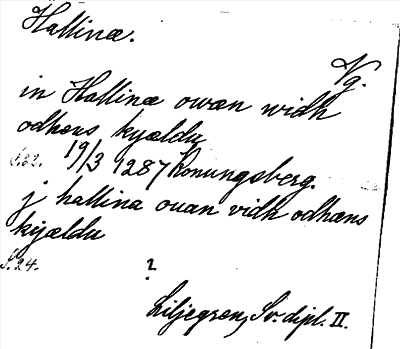 Hallinæ.
Vg.
in Hallinæ owæn widh
odhens kyældu
S.22. 19/3 1287 Konungsberg.
j hallina ouan vidh odhæns
kyældu
S.24. ?
Liljegren, Sv. dipl. II.